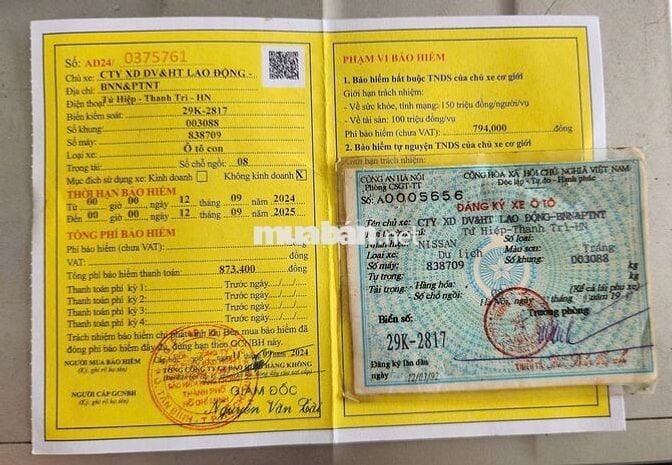 Số: AD24/ 0375761
Chủ xe: CTY XD DV&HT LAO ĐỘNG -
Địa chỉ: BNN&PTNT
Điện thoại: Tứ Hiệp - Thanh Trì - HN
Biển kiểm soát: 29K-2817
Số khung: 003088
Số máy: 838709
Loại xe: Ô tô con
Trọng tải: Số chỗ ngồi: 08
Mục đích sử dụng xe: Kinh doanh Không kinh doanh X
THỜI HẠN BẢO HIỂM
Từ 00 giờ 00 ngày 12 tháng 09 năm 2024
Đến 00 giờ 00 ngày 12 tháng 09 năm 2025
TỔNG PHÍ BẢO HIỂM
Phí bảo hiểm (chưa VAT): đồng
VAT: đồng
Tổng phí bảo hiểm thanh toán: 873,400 đồng
Thanh toán phí kỳ 1: Trước ngày
Thanh toán phí kỳ 2: Trước ngày
Thanh toán phí kỳ 3: Trước ngày
Thanh toán phí kỳ 4: Trước ngày
Trách nhiệm bảo hiểm chỉ phát sinh khi Bên mua bảo hiểm đã
đóng phí bảo hiểm đầy đủ, đúng hạn theo GCNBH này.
11 09 năm 2024
NGƯỜI MUA BẢO HIỂM TỔNG CÔNG TY BẢO HIỂM HÀNG KHÔNG
(Ký, ghi rõ họ tên)
NGƯỜI CẤP GCNBH
(Ký, ghi rõ họ tên)
THÀNH PHỐ
HỒ CHÍ MINH
GIÁM ĐỐC
Nguyễn Văn
PHẠM VI BẢO HIỂM
1. Bảo hiểm bắt buộc TNDS của chủ xe cơ giới
Giới hạn trách nhiệm:
- Về sức khỏe, tính mạng: 150 triệu đồng/người/vụ
- Về tài sản: 100 triệu đồng/vụ
Phí bảo hiểm (chưa VAT): 794,000 đồng
2. Bảo hiểm tự nguyện TNDS của chủ xe cơ giới
Giới hạn trách nhiệm:
CÔNG AN HÀ NỘI
Phòng CSGT-TT
Số: A0005656
CỘNG HÒA XÃ HỘI CHỦ NGHĨA VIỆT NAM
Độc lập - Tự do - Hạnh phúc
ĐĂNG KÝ XE Ô TÔ
Tên chủ xe: CTY XD DV&HT LAO ĐỘNG-BNN&PTNT
Tứ Hiệp-Thanh Trì-HN
Nhãn hiệu: NISSAN Số loại:
Loại xe: Du lịch Màu sơn: Trắng
Số máy: 838709 Số khung: 003088
Tự trọng: kg
Tải trọng: Hàng hóa: kg
- Số chỗ ngồi: (Kể cả lái phụ xe)
Hà Nội, ngày tháng năm
Trưởng phòng
Biển số:
29K-2817
Đăng ký lần đầu
ngày 12/03/92
muaban.net